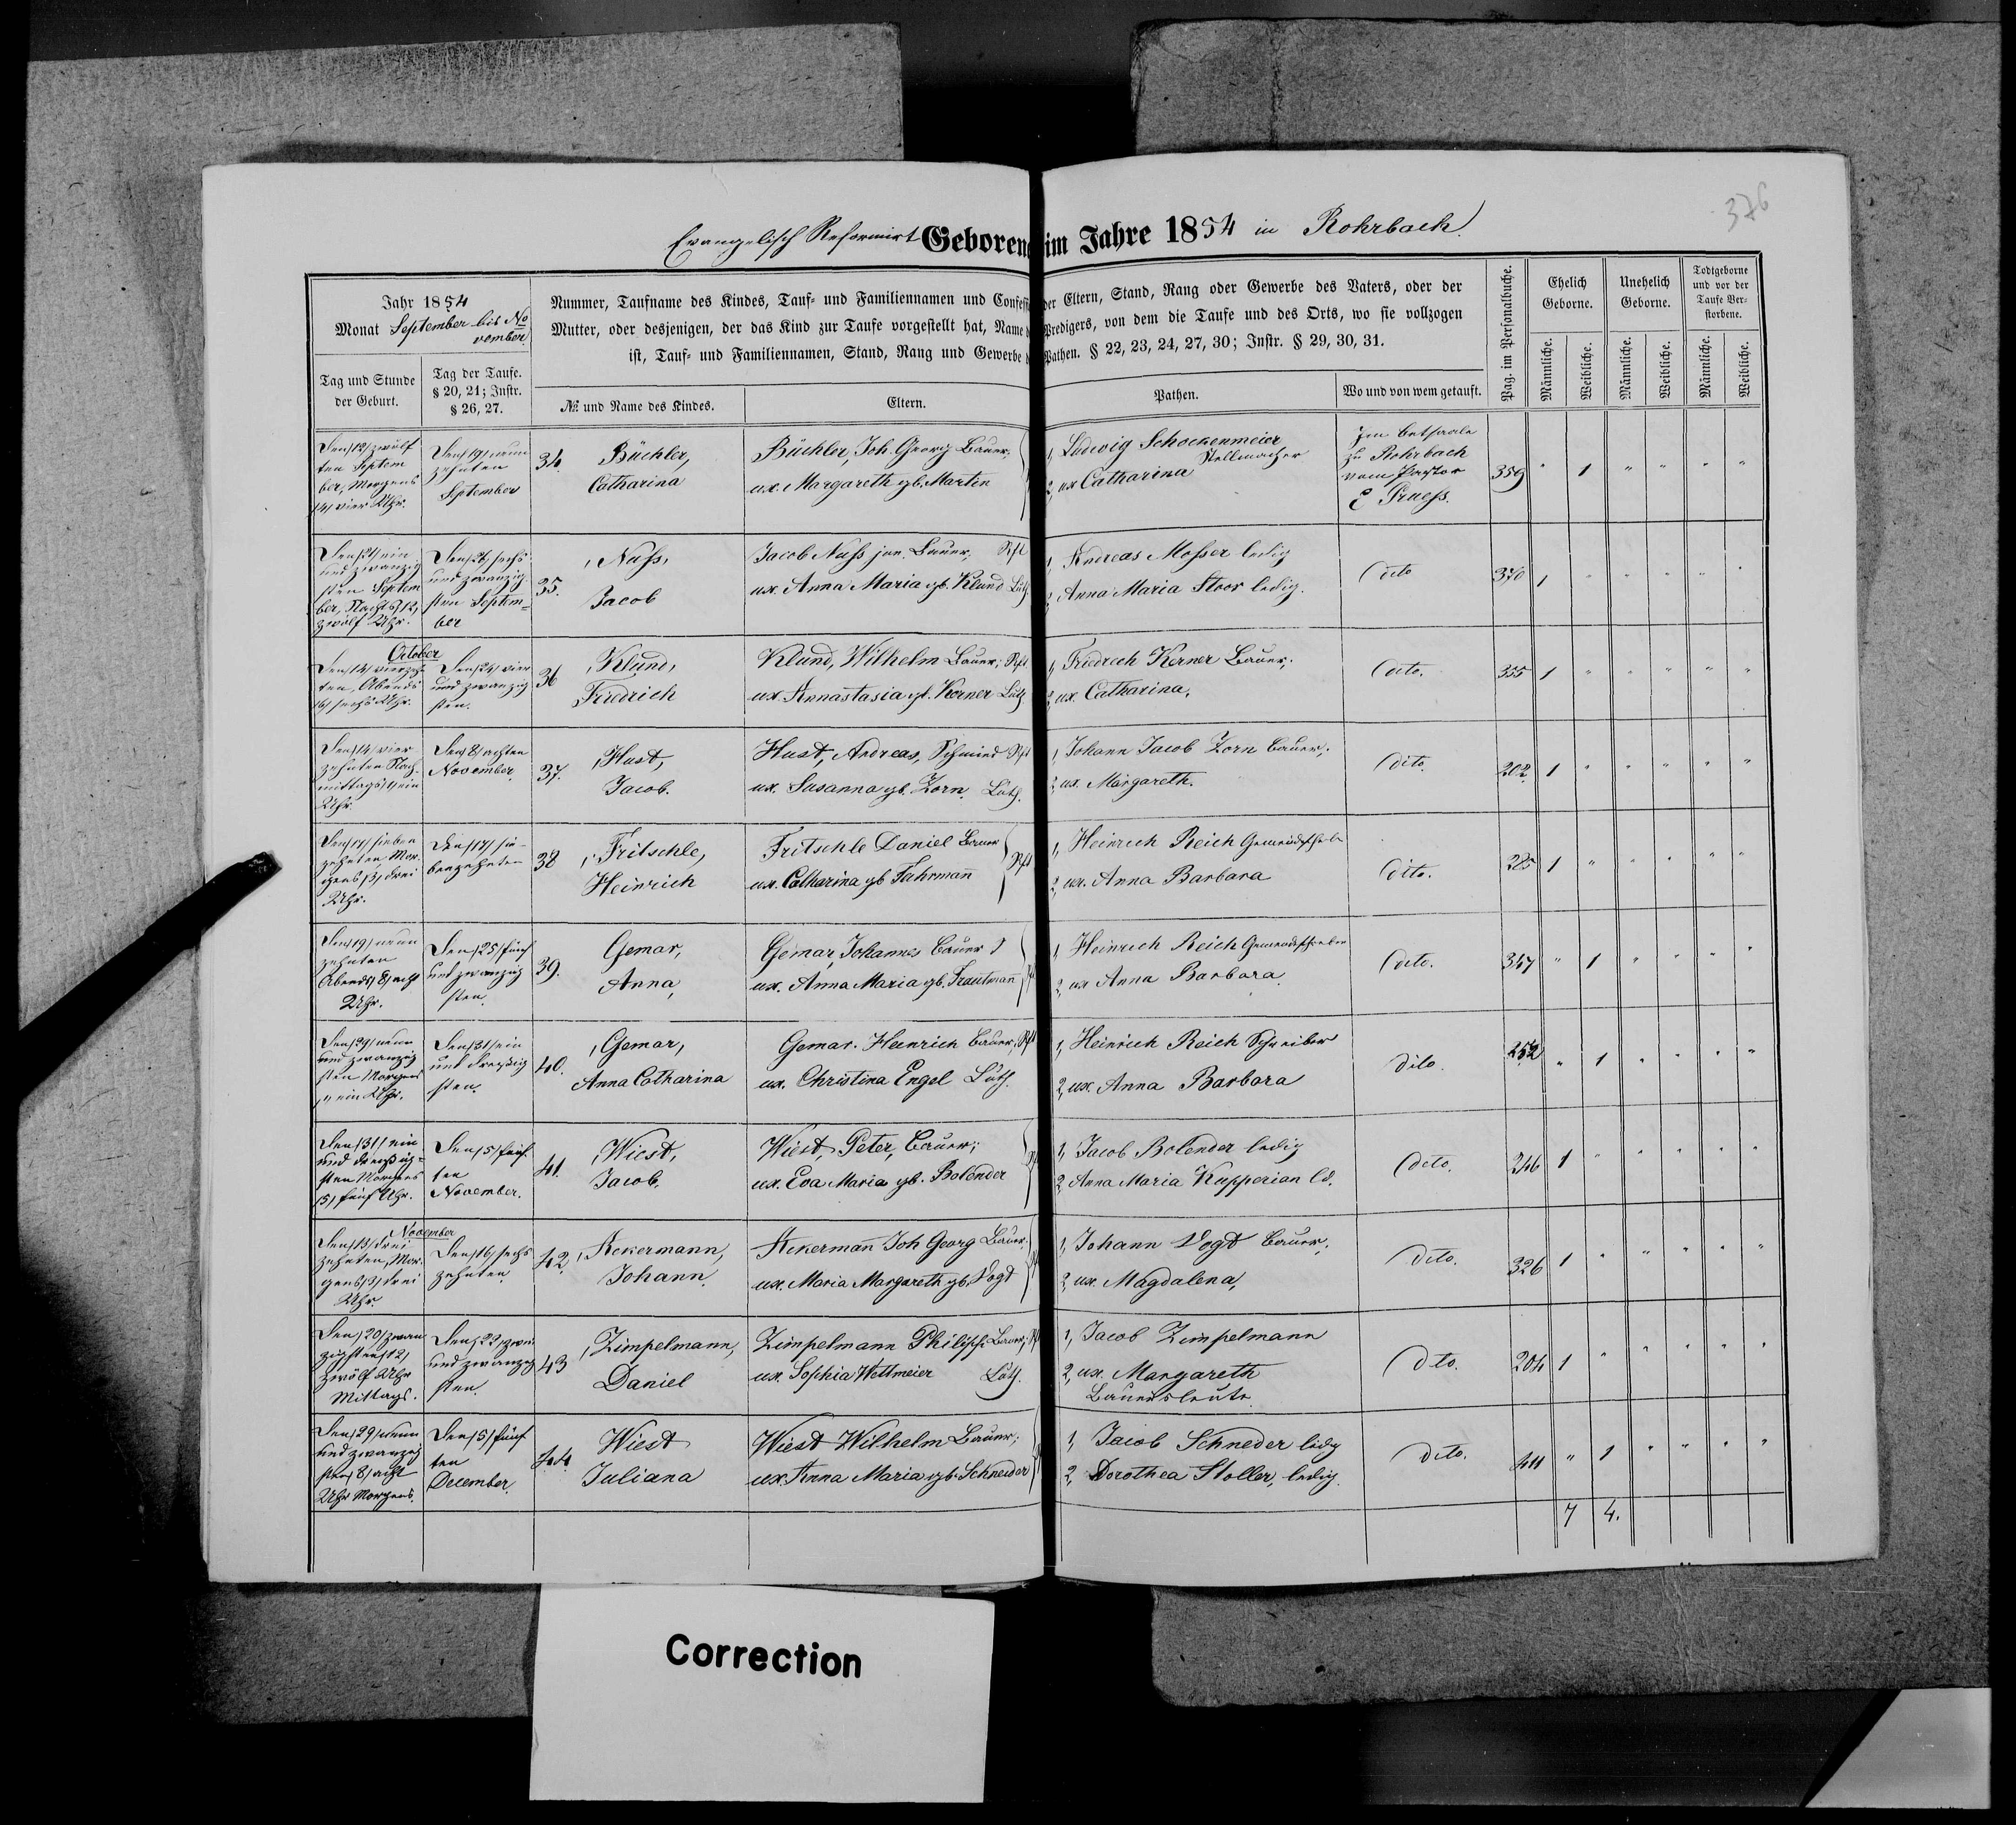 376
Evangelisch Reformirt Geborene im Jahre 1854 in Rohrbach.
Jahr 1854
Monat September bis No
vember
Nummer, Taufname des Kindes, Tauf- und Familiennamen und Confess
Mutter, oder desjenigen, der das Kind zur Taufe vorgestellt hat, Name
ist, Tauf- und Familiennamen, Stand, Rang und Gewerbe
der Eltern, Stand, Rang oder Gewerbe des Vaters, oder der
Predigers, von dem die Taufe und des Orts, wo sie vollzogen
Pathen. § 22, 23, 24, 27, 30; Instr. § 29, 30, 31.
Pag. im Personalbuche.
Ehelich
Geborne.
Unehelich
Geborne.
Todtgeborne
und vor der
Taufe Ver-
storbene.
Tag und Stunde
der Geburt.
Tag der Taufe.
§ 20, 21; Instr.
§ 26, 27.
№ und Name des Kindes.
Eltern.
Pathen.
Wo und von wem getauft.
Männliche.
Weibliche.
Männliche.
Weibliche.
Männliche.
Weibliche.
Den /12/ zwölf
ten Septem
ber, Morgens
/4/ vier Uhr.
Den /19/ neun
zehnten
September
34.
Büchler,
Catharina
Büchler, Joh. Georg Bauer;
ux. Margareth gb. Martin
1, Ludwig Schockenmeier
Stellmacher
2, ux Catharina
Im Bethsaale
zu Rohrbach
vom Pastor
E Pruess.
359 " 1 " " " "
Den /21/ ein
und zwanzig
sten Septem
ber, Nachts /12/
zwölf Uhr.
Den /26/ sechs
und zwanzig
sten Septem=
ber
35.
Nuss,
Jacob
Jacob Nuss jun. Bauer, Rft
ux. Anna Maria gb. Klund Luth.
1, Andreas Mosser ledig
2, Anna Maria Stoor ledig.
dito
370 1 " " " " "
October
Den /14/ vierzehn
ten, Abends
/6/ sechs Uhr.
Den /24/ vier
und zwanzig
sten.
36
Klund,
Friedrich
Klund, Wilhelm Bauer; Rft
ux. Annastasia gb. Kerner Luth.
1, Friedrich Kerner Bauer;
2, ux. Catharina,
dito.
355 1 " " " " "
Den /14/ vier
zehnten Nach
mittags /1/ ein
Uhr.
Den /8/ achten
November
37.
Hust,
Jacob.
Hust, Andreas, Schmied Rft
ux. Susanna gb. Zorn. Luth.
1, Johann Jacob Zorn Bauer;
2, ux. Margareth.
dito.
202 1 " " " " "
Den /17/ sieben
zehnten Mor
gens /3/ drei
Uhr.
Den /17/ sie-
benzehnten
38
Fritschle,
Heinrich
Fritschle Daniel Bauer
ux. Catharina gb Fuhrmann
Rft
1, Heinrich Reich Gemeindschrbr
2, ux. Anna Barbara
dito.
285 1 " " " " "
Den /19/ neun
zehnten
Abends /8/ acht
Uhr.
Den /25/ fünf
und zwanzig
sten.
39.
Gemar,
Anna,
Gemar, Johannes Bauer
ux. Anna Maria gb. Trautmann
1, Heinrich Reich Gemeindeschreiber
2, ux Anna Barbara.
dito.
347 " 1 " " " "
Den /29/ neun
und zwanzig
sten Morgens
/1/ ein Uhr.
Den /31/ ein
und dreyßig
sten.
40.
Gemar,
Anna Catharina
Gemar. Heinrich Bauer, Rft
ux. Christina Engel Luth.
1, Heinrich Reich Schreiber
2, ux. Anna Barbara
dito.
252 " 1 " " " "
Den /31/ ein
und dreyßig-
sten Morgens
/5/ fünf Uhr.
Den /5/ fünf
ten
November.
41.
Wiest,
Jacob.
Wiest, Peter, Bauer;
ux. Eva Maria gb. Bolender
1, Jacob Bolender ledig
2, Anna Maria Kupperian ld.
dito.
246 1 " " " " "
November
Den /13/ drei
zehnten, Mor
gens /3/ drei
Uhr.
Den /16/ sechs
zehnten
42.
Ackermann,
Johann.
Ackermann Joh Georg Bauer,
ux. Maria Margareth gb. Vogt
1, Johann Vogt Bauer;
2, ux. Magdalena,
dito.
326 1 " " " " "
Den /20/ zwan
zigsten /12/
zwölf Uhr
Mittags.
Den /22/ zwei
und zwanzig
sten.
43
Zimpelmann,
Daniel
Zimpelmann Philipp Bauer, Rft
ux. Sophia Wettmeier Luth.
1, Jacob Zimpelmann
2, ux. Margareth
Bauersleute.
dito.
204 1 " " " " "
Den /29/ neun
und zwanzig
sten /8/ acht
Uhr Morgens.
Den /5/ fünf
ten
December.
44.
Wiest
Juliana
Wiest Wilhelm Bauer;
ux. Anna Maria gb. Schneider
1, Jacob Schneder ledig
2, Dorothea Stoller, ledig.
dito.
411 " 1 " " " "
7 4.
Correction